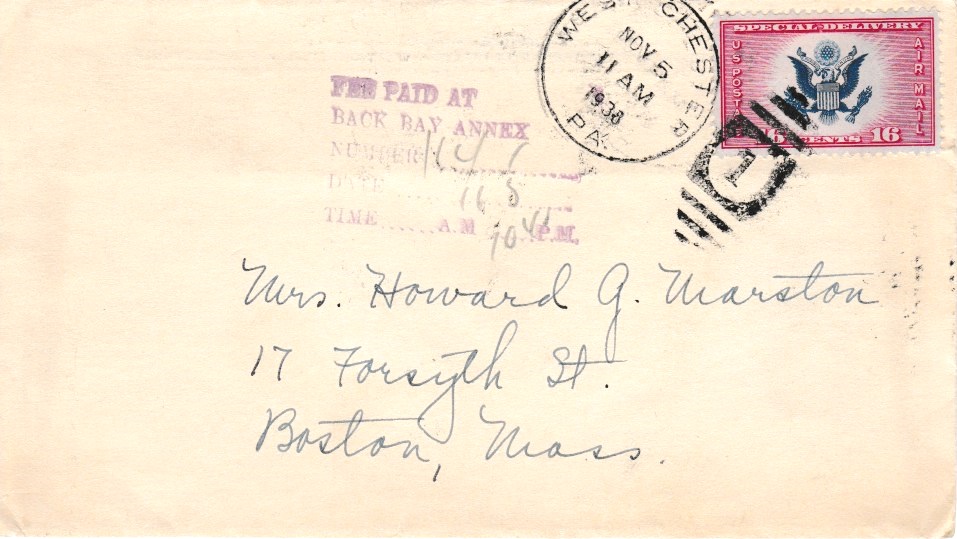 WEST CHESTER
NOV 5
11 AM
1938
PA.
SPECIAL DELIVERY
U S POSTAGE
AIR MAIL
16 CENTS 16
1
FEE PAID AT
BACK BAY ANNEX
NUMBER
DATE 11 5
TIME A.M 10 45 P.M.
Mrs. Howard G. Marston
17 Forsyth St.
Boston, Mass.